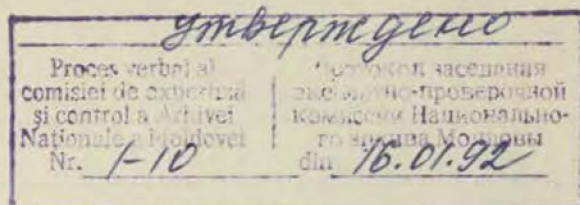 утверждено
Proces verbal al
comisiei de expertiză
și control a Arhivei
Naționale a Moldovei
Nr. 1-10
Протокол заседания
экспертно-проверочной
комиссии Национально-
го архива Молдовы
din 16.01.92